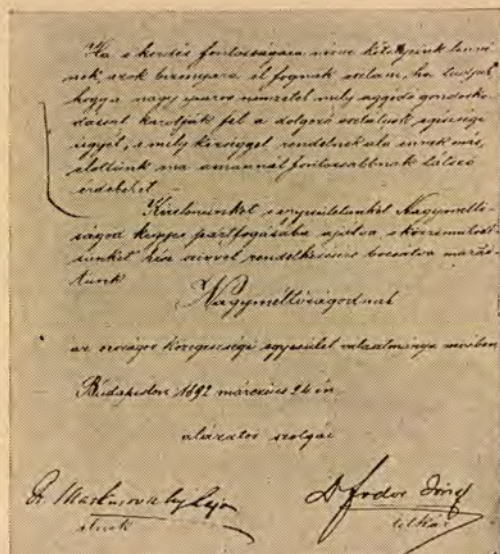 Ha e kérdés fontosságára nézve kételyeink lenné-
nek, azok bizonyára el fognak oszlani, ha tudjuk,
hogy a nagy iparos nemzetek mely aggódó gondosko-
dással karolják fel a dolgozó osztályok egészségi
ügyét, s mely készséggel rendelnek alá ennek más,
előttünk ma amannál fontosabbnak látszó
érdekeket.
Kérelmünket s egyesületünket Nagymeltó-
ságod kegyes pártfogásába ajánlva, s közremüködé-
sünket kész szivvel rendelkezésére bocsátva marad-
tunk
Nagyméltóságodnak
az országos közegészségi egyesület választmánya nevében
Budapesten 1892 márczius 24 én.
alázatos szolgái
Dr Markusovszky Lajos Dr Fodor József
elnök titkár